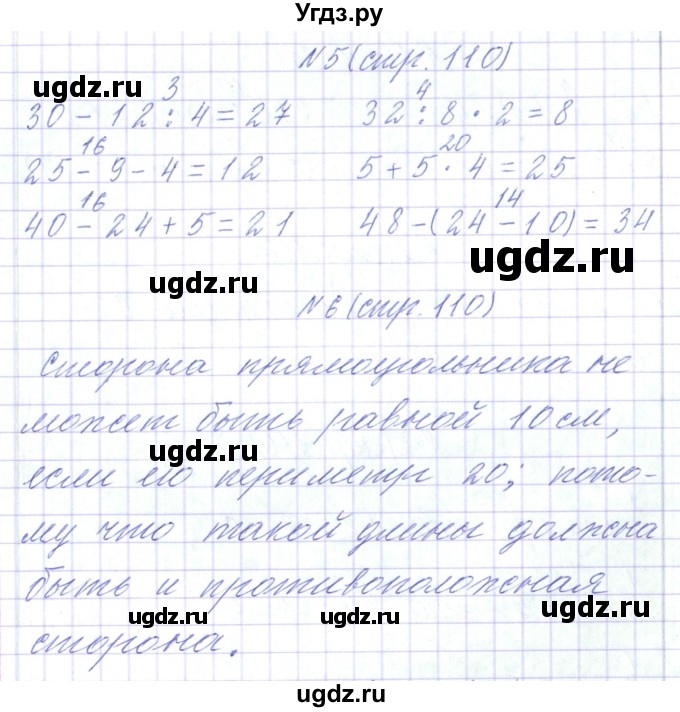 Угдз.ру
N5 (стр. 110)
ugdz.ru ugdz.ru
3 4
30 - 12 : 4 = 27 32 : 8 · 2 = 8
16 20
25 - 9 - 4 = 12 5 + 5 · 4 = 25
16 14
40 - 24 + 5 = 21 48 - (24 - 10) = 34
ugdz.ru
ugdz.ru
N6 (стр. 110)
Сторона прямоугольника не
может быть равной 10 см,
ugdz.ru ugdz.ru
если его периметр 20; пото-
му что такой длины должна
быть и противоположная
ugdz.ru ugdz.ru ugdz.ru
сторона.
ugdz.ru